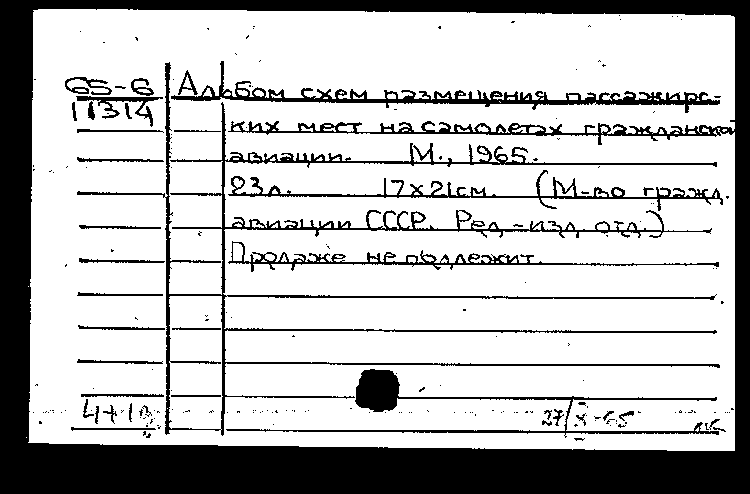 65-6 Альбом схем размещения пассажирс-
11314
ких мест на самолетах гражданской
авиации. М., 1965.
23л. 17x21см. (М-во гражд.
авиации СССР. Ред.-изд. отд.)
Продаже не подлежит.
27/X-65